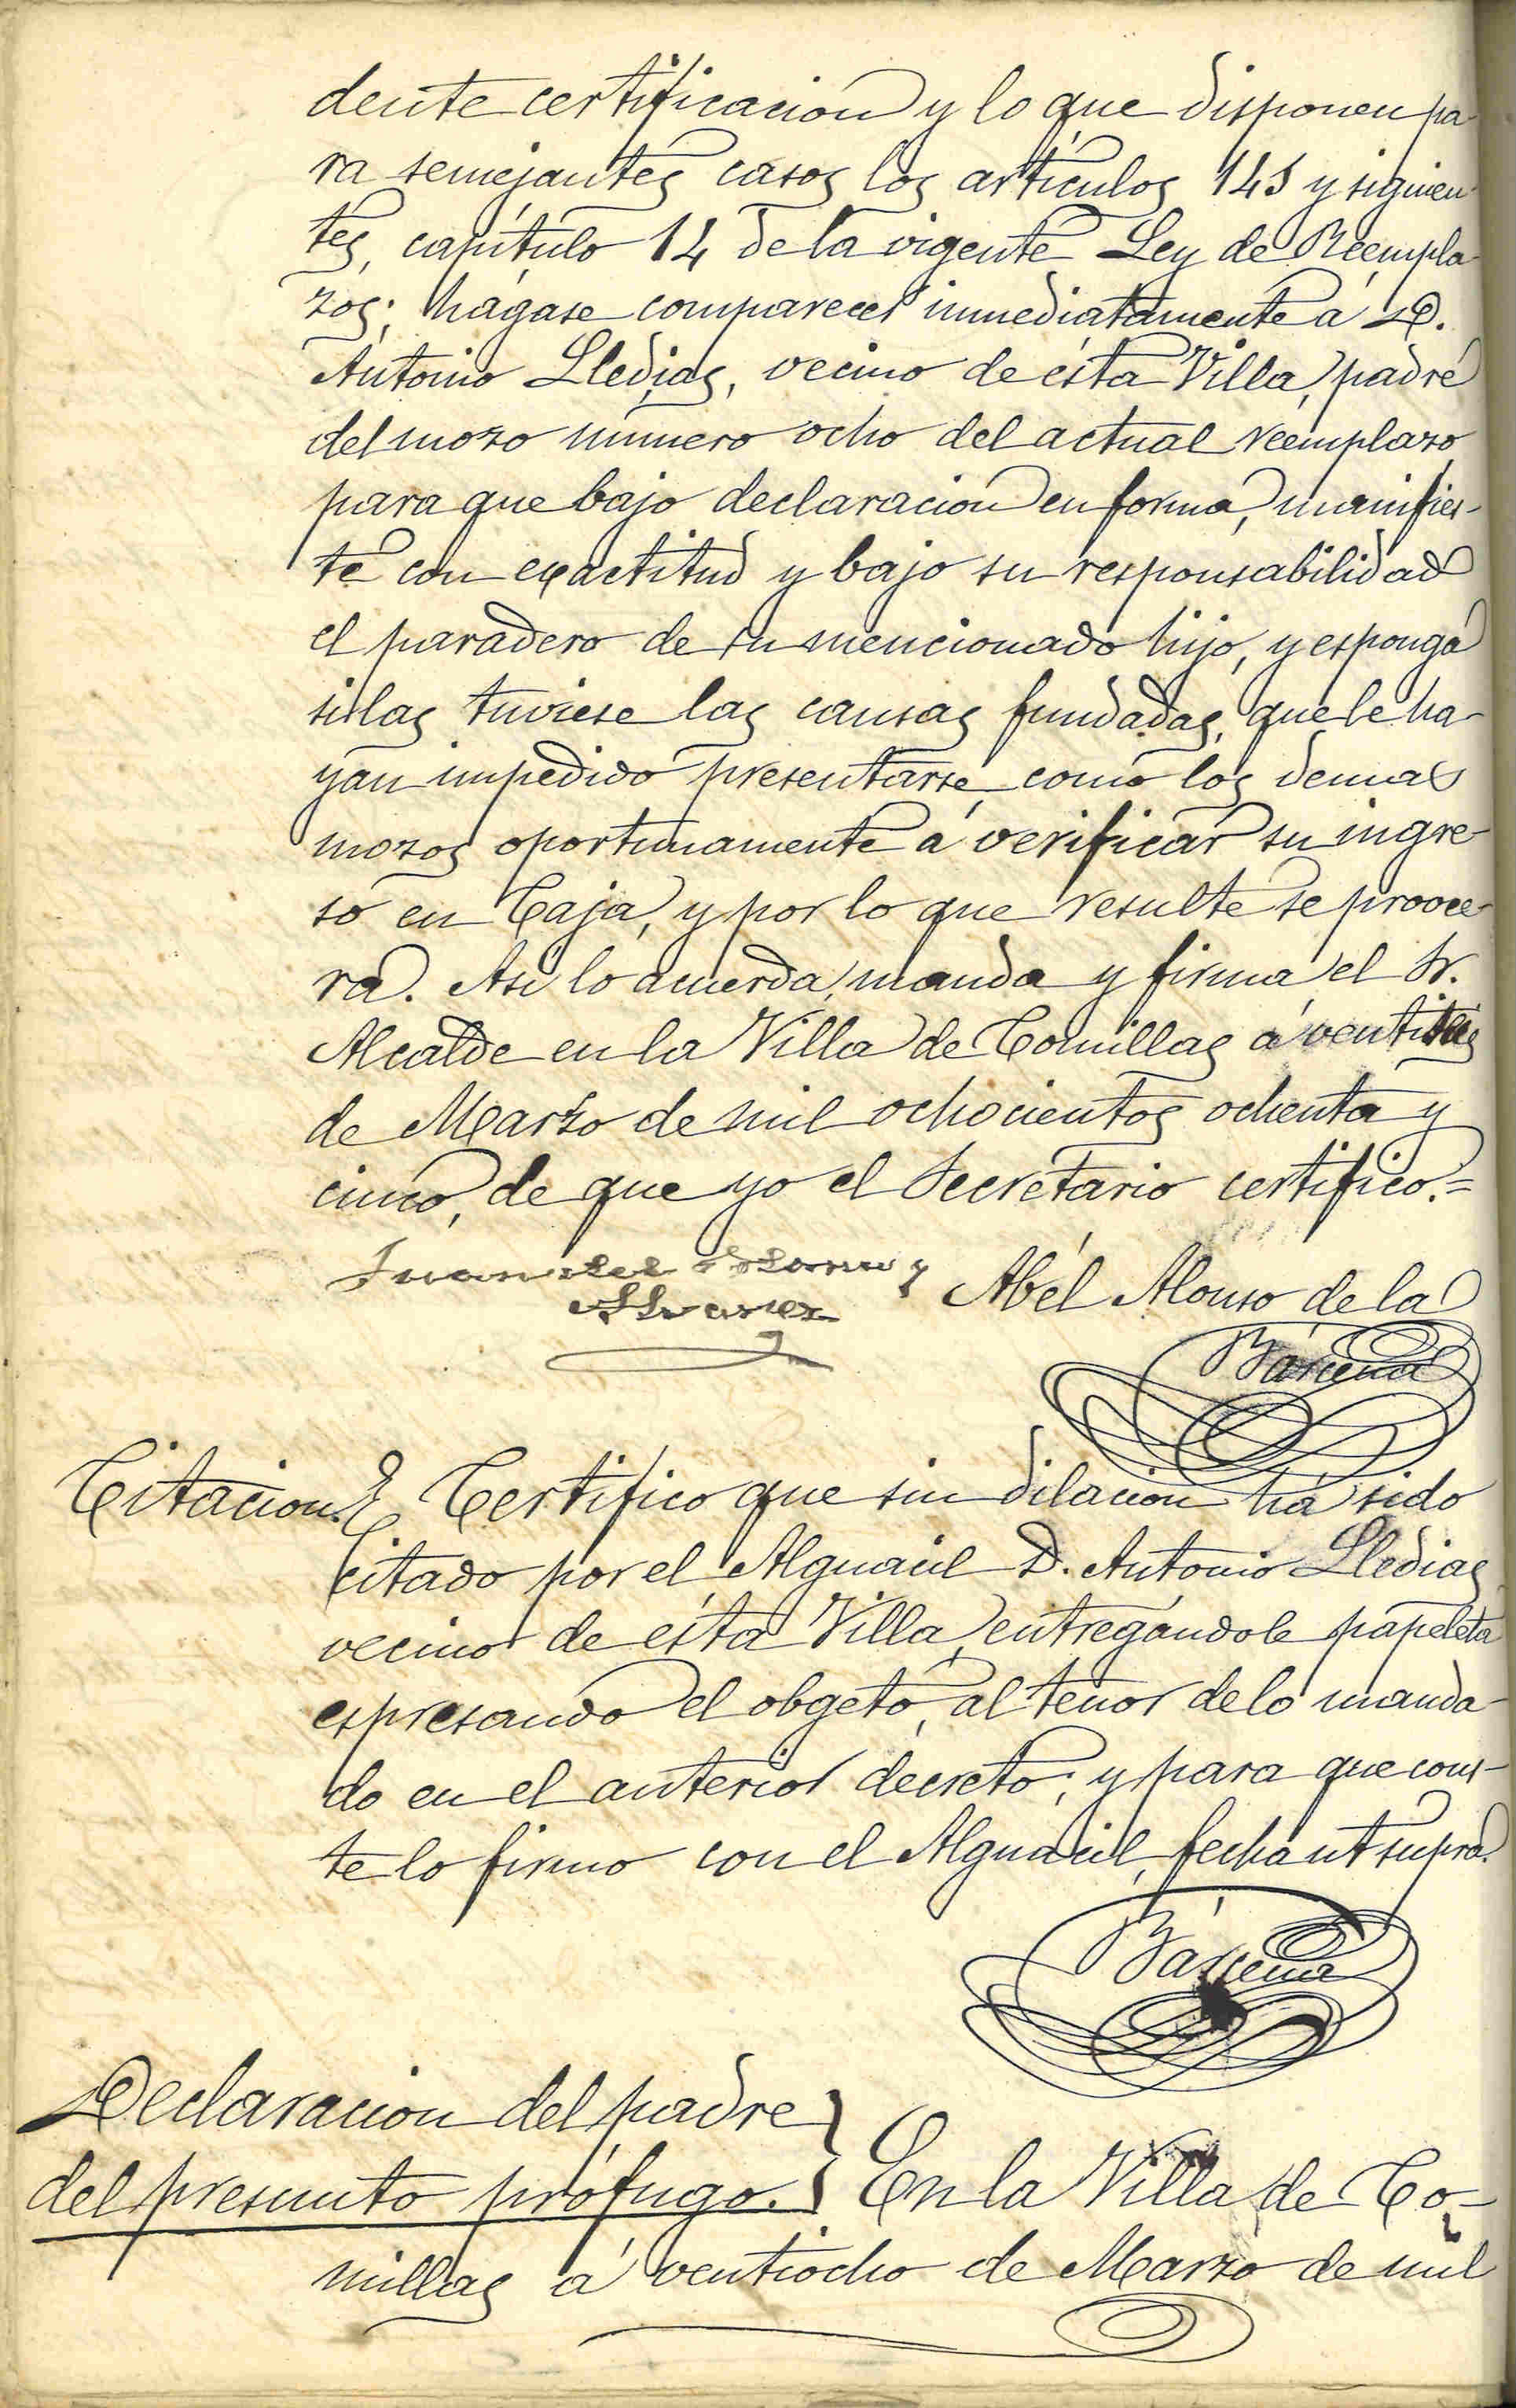 dente certificación y lo que disponen pa
ra semejantes casos los artículos 145 y siguien-
tes, capítulo 14 de la vigente Ley de Reempla-
zos; hágase comparecer inmediatamente á D.
Antonio Lledias, vecino de ésta Villa, padre
del mozo número ocho del actual reemplazo
para que bajo declaración en forma, manifies-
te con exactitud y bajo su responsabilidad
el paradero de su mencionado hijo, y esponga
si las tuviese las causas fundadas, que le ha-
yan impedido presentarse, como los demas
mozos oportunamente á verificar su ingre-
so en Caja, y por lo que resulte se provee-
rá. Así lo acuerda, manda y firma el Sr.
Alcalde en la Villa de Comillas á
de Marzo de mil ochocientos ochenta y
cinco, de que yo el Secretario certifico.=
Juan del y
Alvarez
Abél Alonso de la
Bárcena
Citacion. Certifico que sin dilacion há sido
citado por el Alguacil D. Antonio Lledias
vecino de ésta Villa, entregándole papeleta
espresando el obgeto, al tenor de lo manda-
do en el anterior decreto; y para que cons-
te lo firmo con el Alguacil, fecha ut supra.
Bárcena
Declaracion del padre
del presunto prófugo. } En la Villa de Co-
millas á ventiocho de Marzo de mil